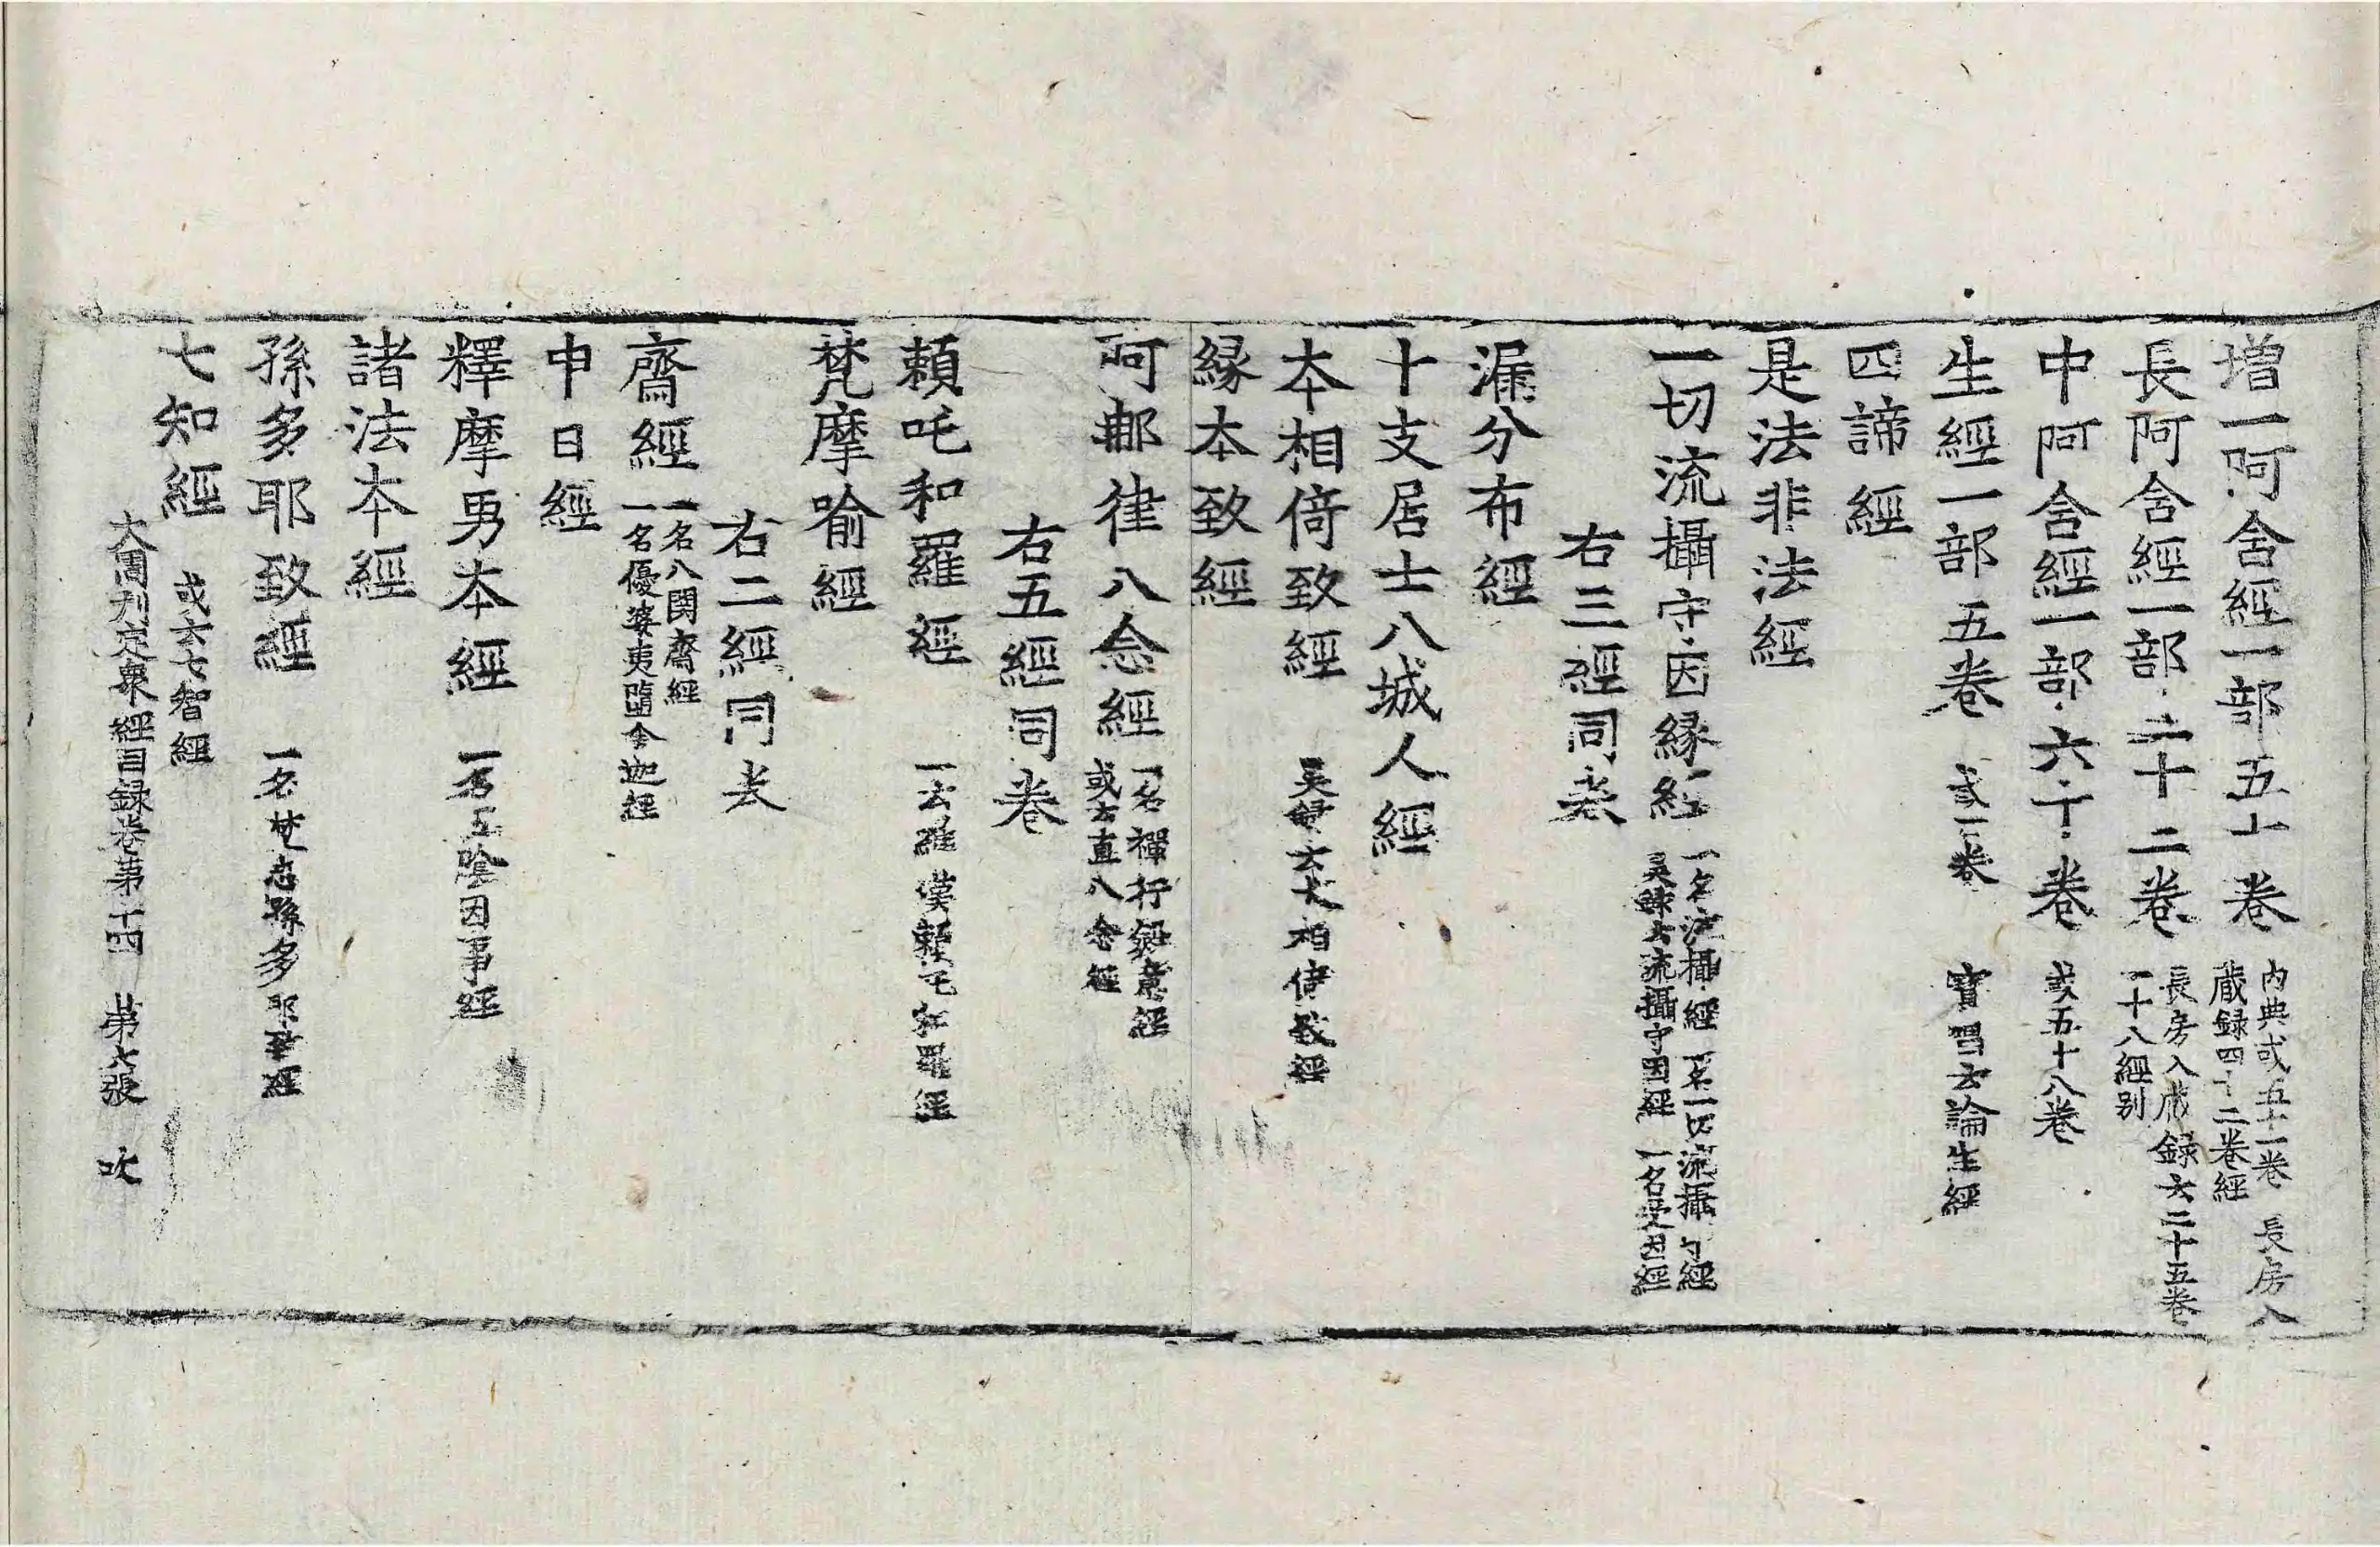 増一阿含經一部五十卷 内典或五十一卷 長房入
藏録四十二卷經
長阿含經一部二十二卷 長房入藏録云二十五卷
二十八經别
中阿含經一部六十卷 或五十八卷
生經一部五卷 或一卷 寶唱云論生經
四諦經
是法非法經
一切流攝守因縁經 一名流攝經 一名一切流攝守經
吴録云流攝守因經 一名受因經
右三經同卷
漏分布經
十支居士八城人經
本相倚致經 吴録云大相倚致經
縁本致經
阿那律八念經 一名禪行斂意經
或云直八念經
右五經同卷
頼吒和羅經 一云羅漢頼吒和羅經
梵摩喻經
右二經同卷
齋經 一名八関齋經
一名優婆夷墮舍迦經
申日經
釋摩男本經 一名五陰因事經
諸法本經
孫多耶致經 一名梵志孫多耶致經
七知經 或云七智經
大周刊定衆經目録卷第十四 第六張 吹